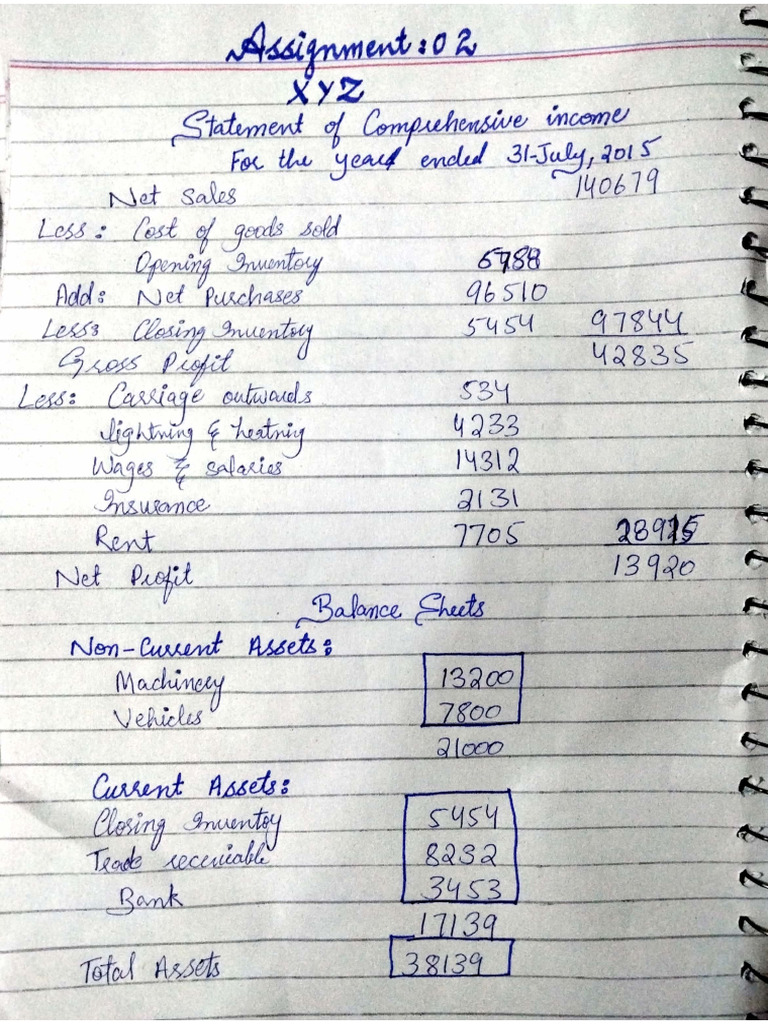 Assignment: 02
XYZ
Statement of Comprehensive income
For the year ended 31-July, 2015
Net Sales 140679
Less: Cost of goods sold
Opening Inventory 6788
Add: Net Purchases 96510
Less: Closing Inventory 5454 97844
Gross Profit 42835
Less: Carriage outwards 534
lightning & heatnig 4233
Wages & salaries 14312
Insurance 2131
Rent 7705 28915
Net Profit 13920
Balance Sheets
Non-Current Assets:
Machinery 13200
Vehicles 7800
21000
Current Assets:
Closing Inventoy 5454
Trade receivable 8232
Bank 3453
17139
Total Assets 38139